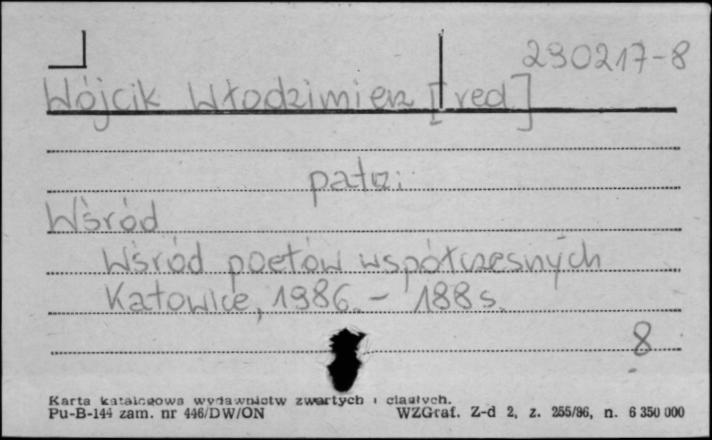 290217-8
Wójcik Włodzimierz [red]
patrz:
Wśród
Wśród poetów współczesnych
Katowice, 1986. - 188 s.
8
Karta katalogowa wydawnictw zwartych i ciągłych.
Pu-B-144 zam. nr 446/DW/ON WZGraf. Z-d 2, z. 255/86, n. 6 350 000